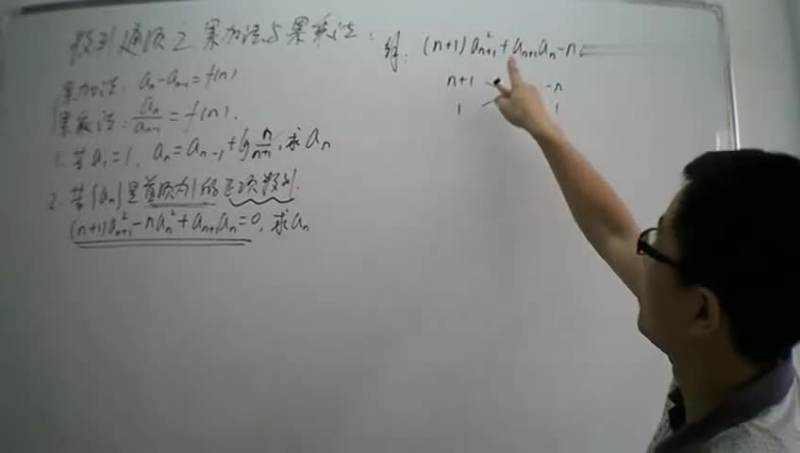 数列通项之累加法与累乘法:
累加法: aₙ-aₙ₋₁=f(n)
累乘法: aₙ/aₙ₋₁=f(n).
1. 若a₁=1, aₙ=aₙ₋₁+lg n/(n+1), 求aₙ
2. 若{aₙ}是首项为1的正项数列.
(n+1)aₙ₊₁²-naₙ²+aₙ₊₁aₙ=0, 求aₙ
解: (n+1)aₙ₊₁²+aₙ₊₁aₙ-n
n+1 -n
1 1